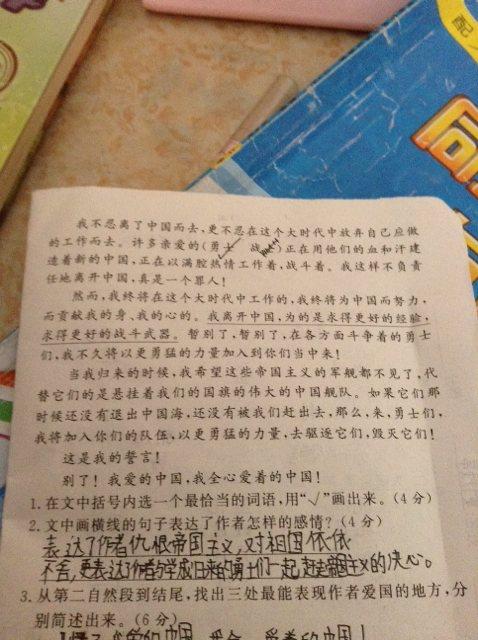 配
同
我不忍离了中国而去，更不忍在这个大时代中放弃自己应做
的工作而去。许多亲爱的（勇士 战）正在用他们的血和汗建
造着新的中国，正在以满腔热情工作着，战斗着。我这样不负责
任地离开中国，真是一个罪人！
然而，我终将在这个大时代中工作的，我终将为中国而努力，
而贡献我的身、我的心的。我离开中国，为的是求得更好的经验，
求得更好的战斗武器。暂别了，暂别了，在各方面斗争着的勇士
们，我不久将以更勇猛的力量加入到你们当中来！
当我归来的时候，我希望这些帝国主义的军舰都不见了，代
替它们的是悬挂着我们的国旗的伟大的中国舰队。如果它们那
时候还没有退出中国海，还没有被我们赶出去，那么，来，勇士们，
我将加入你们的队伍，以更勇猛的力量，去驱逐它们，毁灭它们！
这是我的誓言！
别了！我爱的中国，我全心爱着的中国！
1. 在文中括号内选一个最恰当的词语，用“√”画出来。（4 分）
2. 文中画横线的句子表达了作者怎样的感情？（4 分）
表达了作者仇根帝国主义，对祖国依依
不舍，更表达了作者与学成归来的勇士们一起赶走帝国主义的决心。
3. 从第二自然段到结尾，找出三处最能表现作者爱国的地方，分
别简述出来。（6 分）